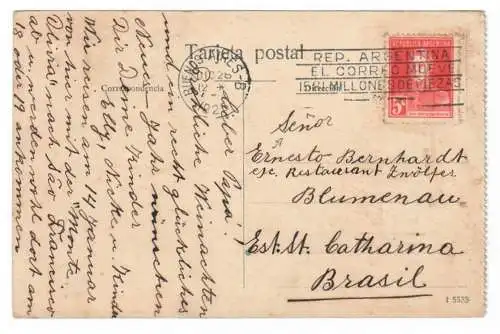 Tarjeta postal
Correspondencia
BUENOS AIRES-B
DIC 26
REP. ARGENTINA
EL CORREO MUEVE
1500 MILLONES DE PIEZAS
REPUBLICA ARGENTINA
5c
Lieber Papa!
Fröhliche Weinachten
und ein recht glückliches
Neues Jahr wünschen
Dir Deine Kinder
Elly, Nicken Kinder
Wir reisen am 14 Januar
von hier mit der "Monte
Oliva" nach São Francisco
ab u werden wohl dort am
18 oder 19 ankommen
Señor
Ernesto Bernhardt
Restaurant Zwölfer
Blumenau
Est. St. Catharina
Brasil
1 5535